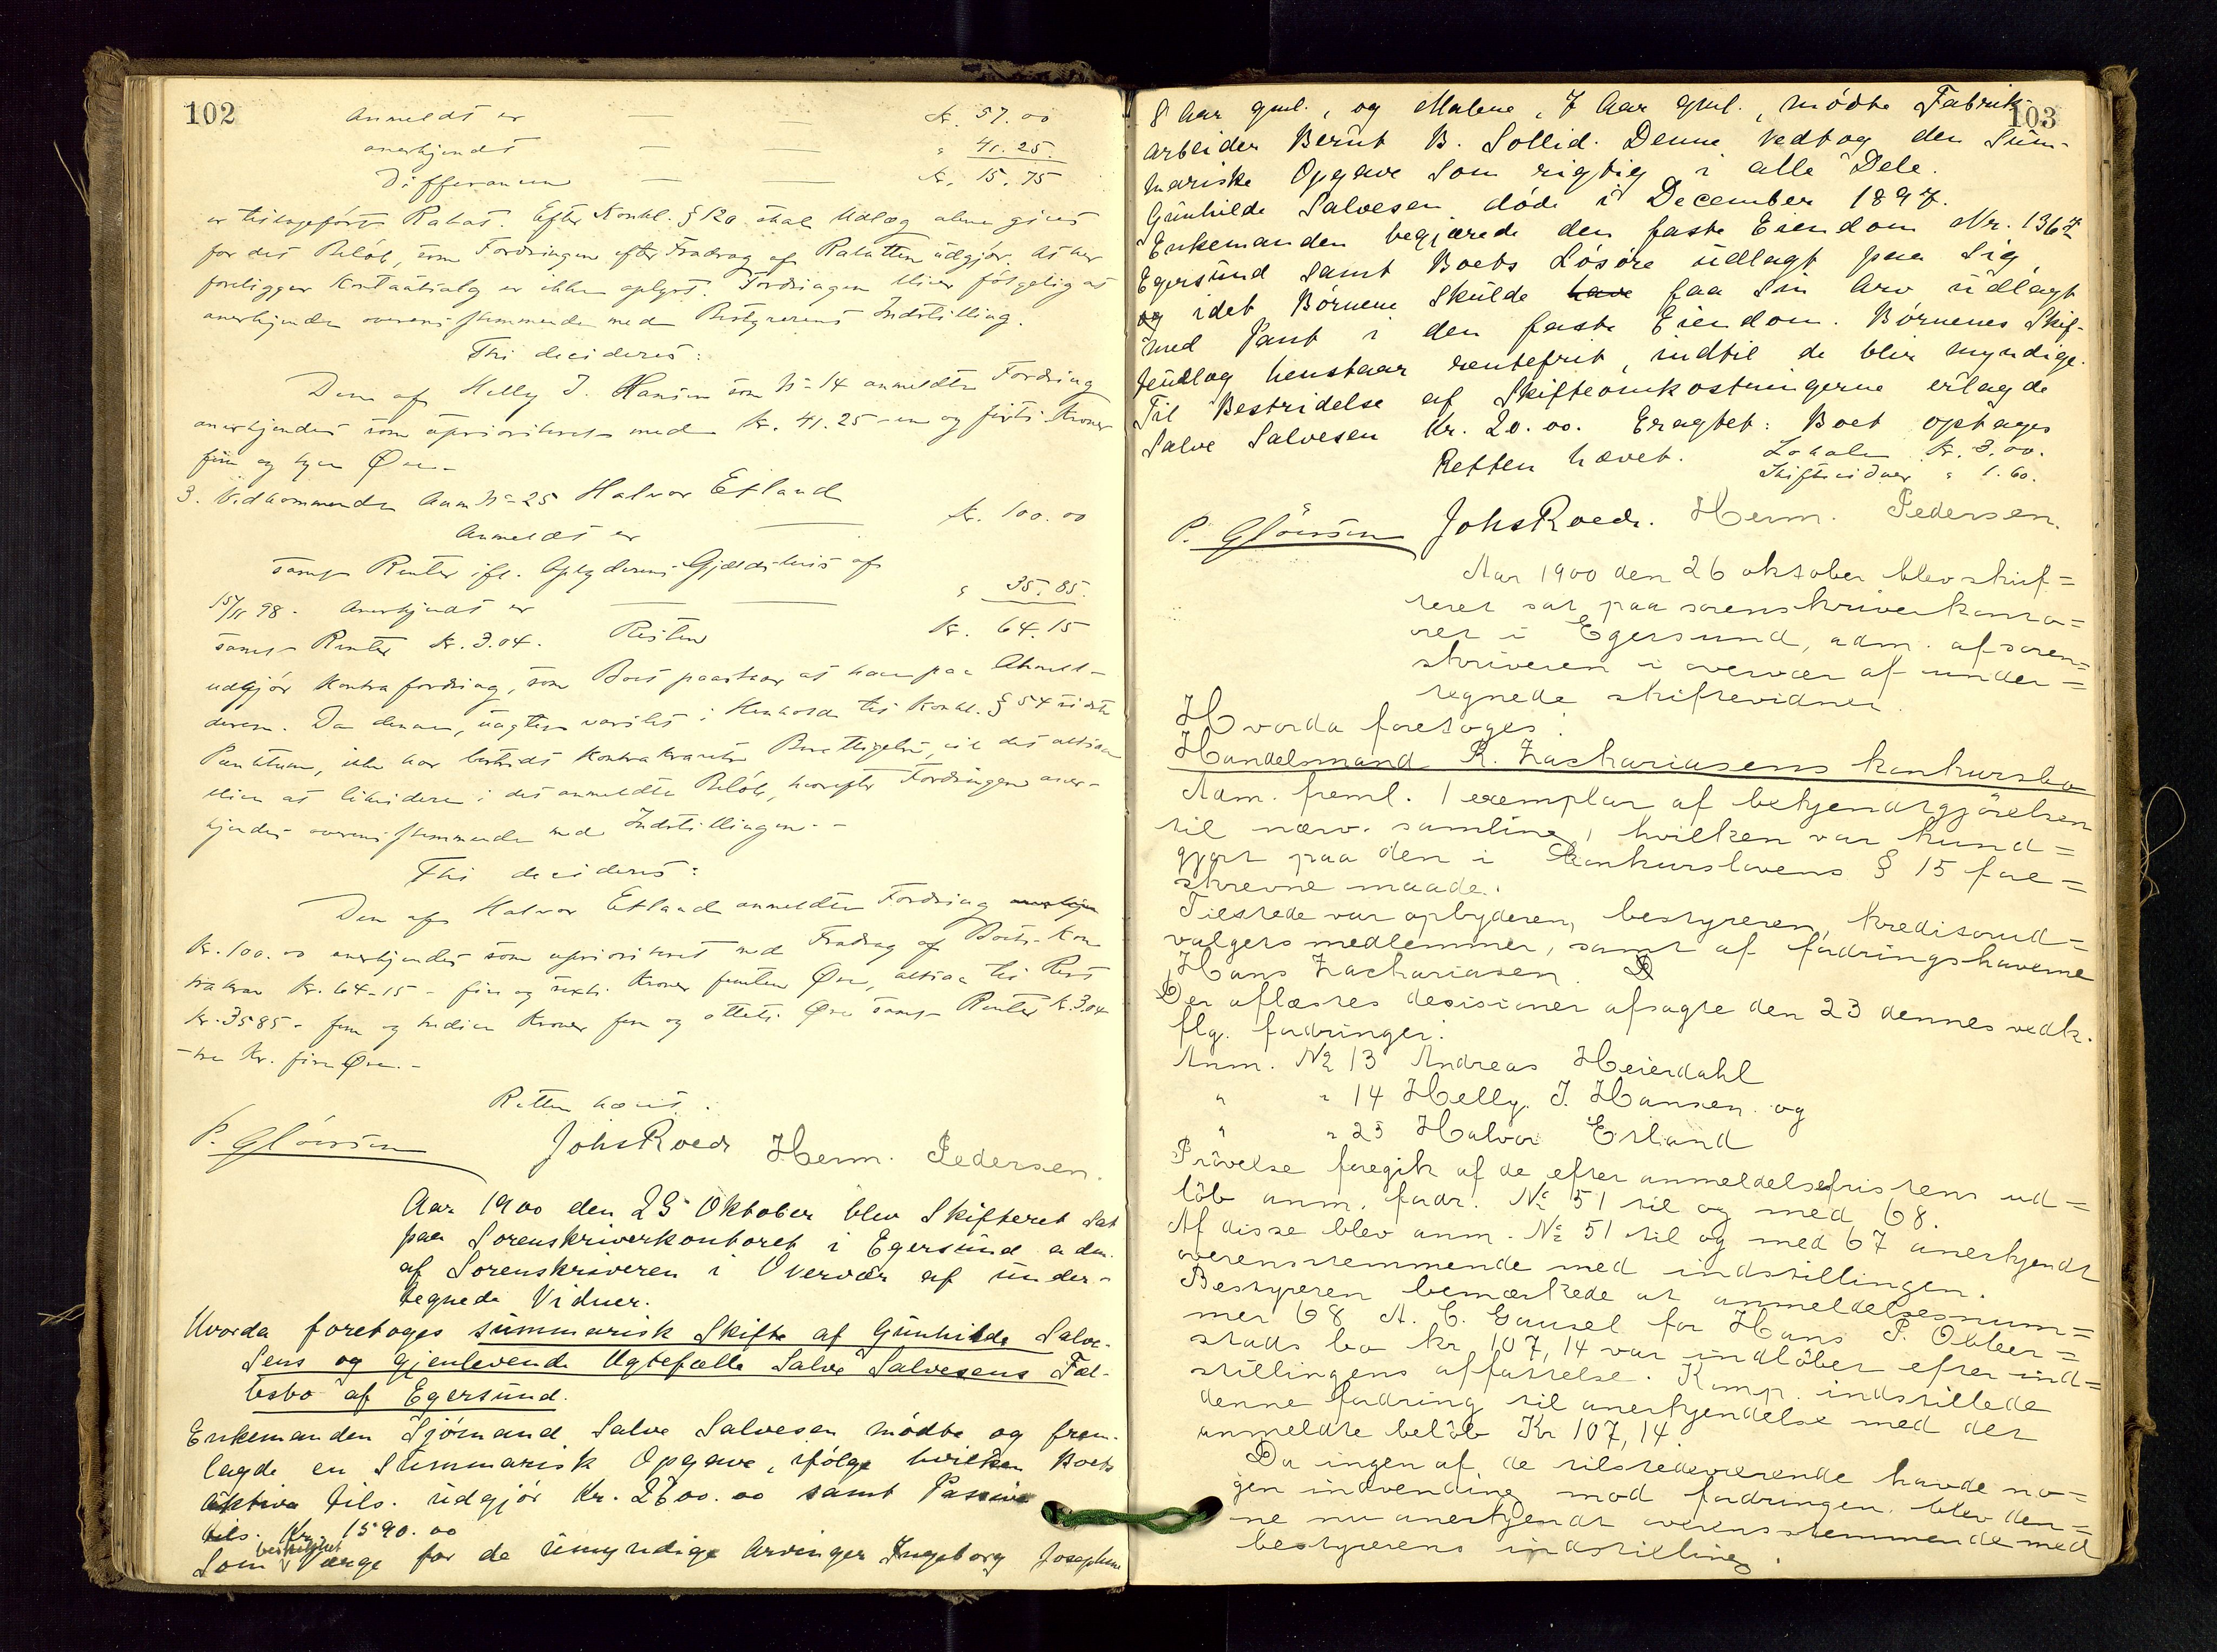 102
Anmeldt er — — Kr. 57.00
anerkjendt — — " 41.25.
Differancen — — Kr. 15.75
er tilbageført Rabat. Efter Konkl. § 120 skal Udlæg alene gives
for det Beløb, som Fordringen efter Fradrag af Rabatten udgjør. At her
foreligger Kontantsalg er ikke oplyst. Fordringen bliver følgelig at
anerkjende overensstemmende med Bestyrerens Indstilling.
Thi decideres:
Den af Helly J. Hansen som No 14 anmeldte Fordring
anerkjendes som uprioriteret med Kr. 41.25 - en og firti Kroner
fem og tyve Øre. -
3. Vedkommende Anm No 25 Halvor Esland
Anmeldt er — Kr. 100.00
samt Renter ifl. Opbyderens Gjældsbevis af
15/11 98. Anerkjendt er — — " 35.85.
samt Renter Kr. 3.04. Resten Kr. 64.15
udgjør Kontrafordring, som Boet paastaar at have paa Anmel-
deren. Da denne, uagtet varslet i Henhold til Konkl. § 54 sidste
Punktum, ikke har bestridt Kontrakravets Berettigelse, vil det altsaa
blive at likvidere i det anmeldte Beløb, hvorefter Fordringen aner-
kjendes overensstemmende med Indstillingen. -
Thi decideres:
Den af Halvor Esland anmeldte Fordring
Kr. 100.00 anerkjendes som uprioriteret med Fradrag af Boets Kon-
trakrav Kr. 64-15 - fire og sexti Kroner femten Øre, altsaa til Rest
Kr. 3585 - fem og tredive Kroner fem og otteti Øre samt Renter Kr. 3.04
- tre Kr. fire Øre. -
Retten hævet.
P. Glørsen JohsRoed. Herm. Pedersen.
Aar 1900 den 25 Oktober blev Skifteret sat
paa Sorenskriverkontoret i Egersund adm.
af Sorenskriveren i Overvær af under-
tegnede Vidner.
Hvorda foretoges summarisk Skifte af Gunhilde Salve-
sens og gjenlevende Ægtefælle Salve Salvesens Fæl-
lesbo af Egersund.
Enkemanden Sjømand Salve Salvesen mødte og frem-
lagde en summarisk Opgave, ifølge hvilken Boets
Aktiva tils. udgjør Kr. 2700.00 samt Passiva
tils. Kr. 1590.00
Som beskikket Værge for de umyndige Arvinger Ingeborg Josephine
103
8 Aar gml., og Malene, 7 Aar gml., mødte Fabrik-
arbeider Bernt B. Sollid. Denne vedtog den sum-
mariske Opgave som rigtig i alle Dele.
Gunhilde Salvesen døde i December 1897.
Enkemanden begjærede den faste Eiendom Nr. 136 7/2
Egersund samt Boets Løsøre udlagt paa sig,
og idet Børnene skulde have faa sin Arv udlagt
med Pant i den faste Eiendom. Børnenes Skif-
teudlæg henstaar rentefrit, indtil de blir myndige.
Til Bestridelse af Skifteomkostningerne erlagde
Salve Salvesen Kr. 20.00. Eragtet: Boet optages
Retten hævet. Lokale Kr. 3.00.
Skiftevidner " 1.60.
P. Glørsen JohsRoed. Herm. Pedersen.
Aar 1900 den 26 oktober blev skif=
teret sat paa sorenskriverkonto=
ret i Egersund, adm. af soren=
skriveren i overvær af under=
tegnede skiftevidner.
Hvorda foretoges:
Handelsmand R. Zachariasens konkursbo
Adm. freml. 1 exemplar af bekjendtgjørelsen
til nærv. samling, hvilken var kund=
gjort paa den i Konkurslovens § 15 fore=
skrevne maade.
Tilstede var opbyderen, bestyreren, kreditorud=
valgets medlemmer, samt af fordringshaverne
Hans Zachariasen.
Der aflæstes desisioner afsagte den 23 dennes vedk.
flg. fordringer:
Anm. No 13 Andreas Heierdahl
" " 14 Helly. J. Hansen. og
" " 25 Halvor Esland
Prøvelse foregik af de efter anmeldelsefristens ud=
løb anm. fordr. No 51 til og med 68.
Af disse blev anm. No 51 til og med 67 anerkjendt
overensstemmende med indstillingen.
Bestyreren bemærkede at anmeldelsesnum=
mer 68 A. C. Gausel for Hans P. Obber=
stads bo kr 107,14 var indløbet efter ind=
stillingens affattelse. Komp. indstillede
denne fordring til anerkjendelse med det
anmeldte beløb Kr 107,14.
Da ingen af de tilstedeværende havde no=
gen indvending mod fordringen, blev den=
ne nu anerkjendt overensstemmende med
bestyrerens indstilling.